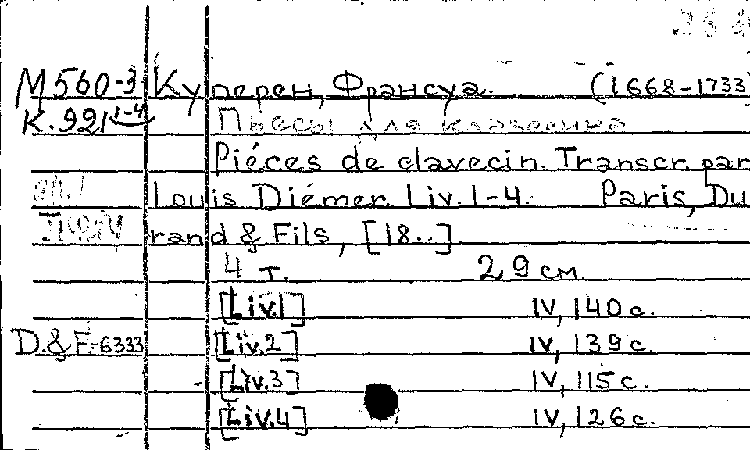 М560-3 Куперен, Франсуа. (1668-1733
К.921 1-4 Пьесы для клавесина
Piéces de clavecin. Transcr. par
Louis Diémer. Liv. 1-4. Paris, Du
rand & Fils, [18..]
4 т. 29 см.
[Liv.1] IV, 140 с.
D.&F.-6333 [Liv.2] IV, 139 с.
[Liv.3] IV, 115 с.
[Liv.4] IV, 126 с.